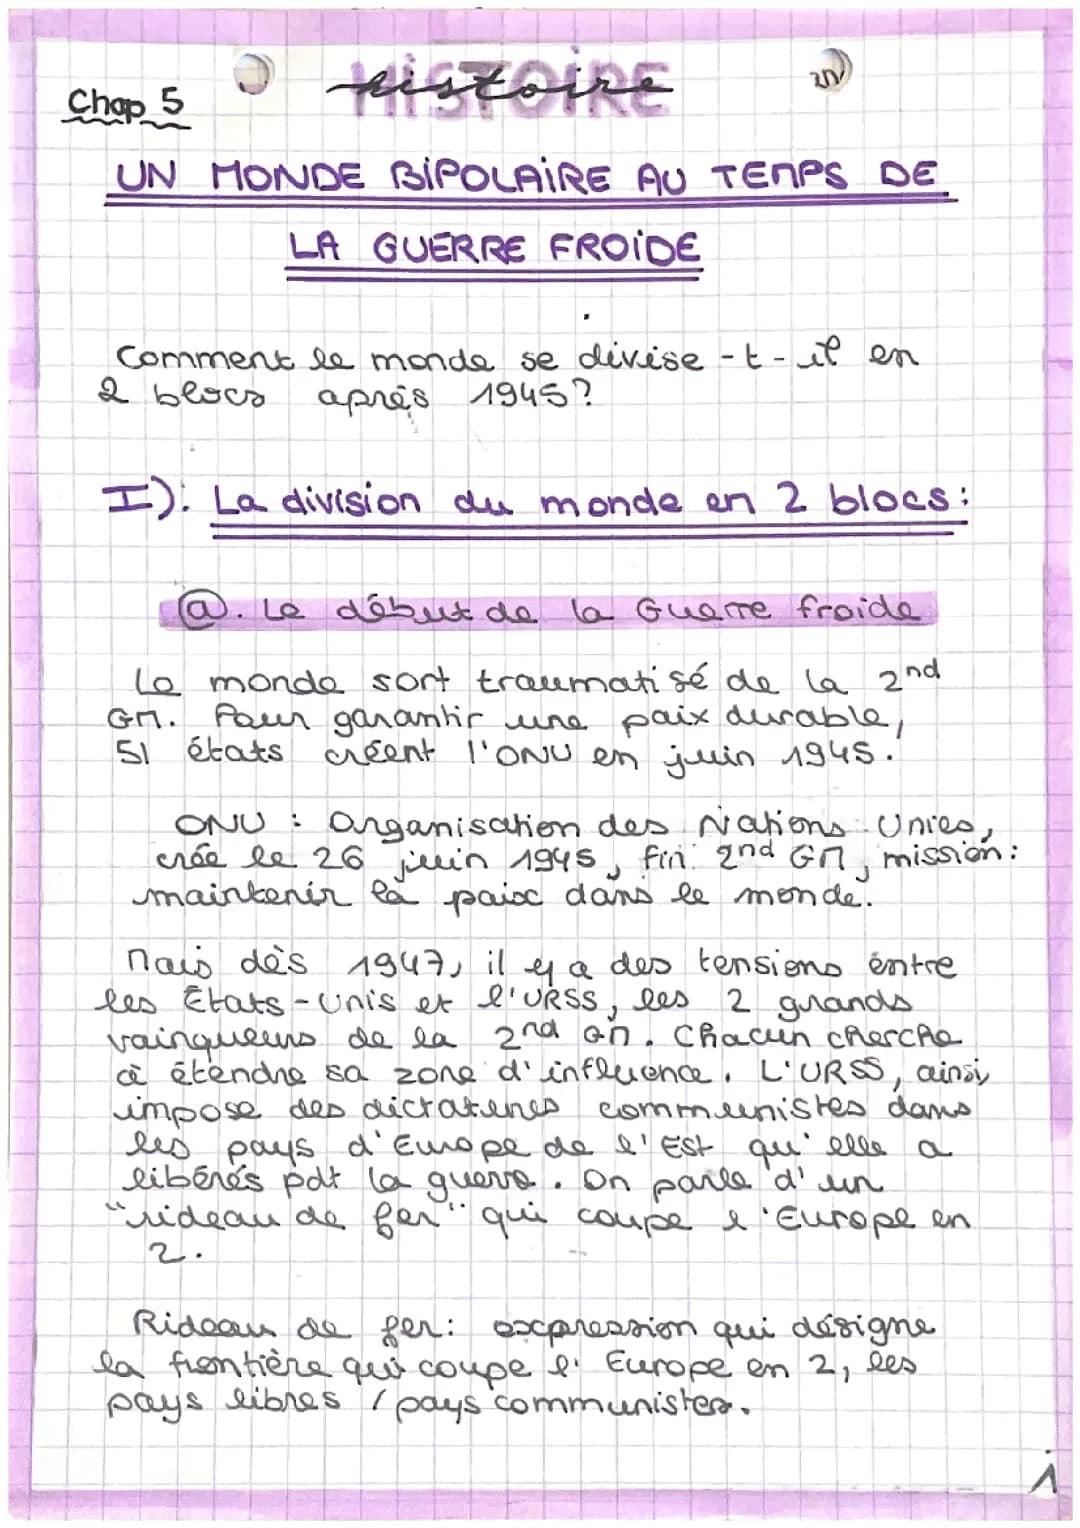 Chap 5
HISTOIRE
histoire
UN MONDE BIPOLAIRE AU TEMPS DE
LA GUERRE FROIDE
Comment le monde se divise-t-il en
2 blocs après 1945?
I). La division du monde en 2 blocs:
ⓐ. Le début de la Guerre froide
Le monde sort traumatisé de la 2nd
GM. Pour garantir une paix durable,
51 états créent l'ONU en juin 1945.
ONU : Organisation des Nations Unies,
crée le 26 juin 1945, fin 2nd GM, mission:
maintenir la paix dans le monde.
Mais dès 1947, il y a des tensions entre
les États-Unis et l'URSS, les 2 grands
vainqueurs de la 2nd GM. Chacun cherche
à étendre sa zone d'influence. L'URSS, ainsi,
impose des dictatures communistes dans
les pays d'Europe de l'Est qu'elle a
libérés pdt la guerre. On parle d'un
"rideau de fer" qui coupe l'Europe en
2.
Rideau de fer: expression qui désigne
la frontière qui coupe l'Europe en 2, les
pays libres / pays communistes.
1